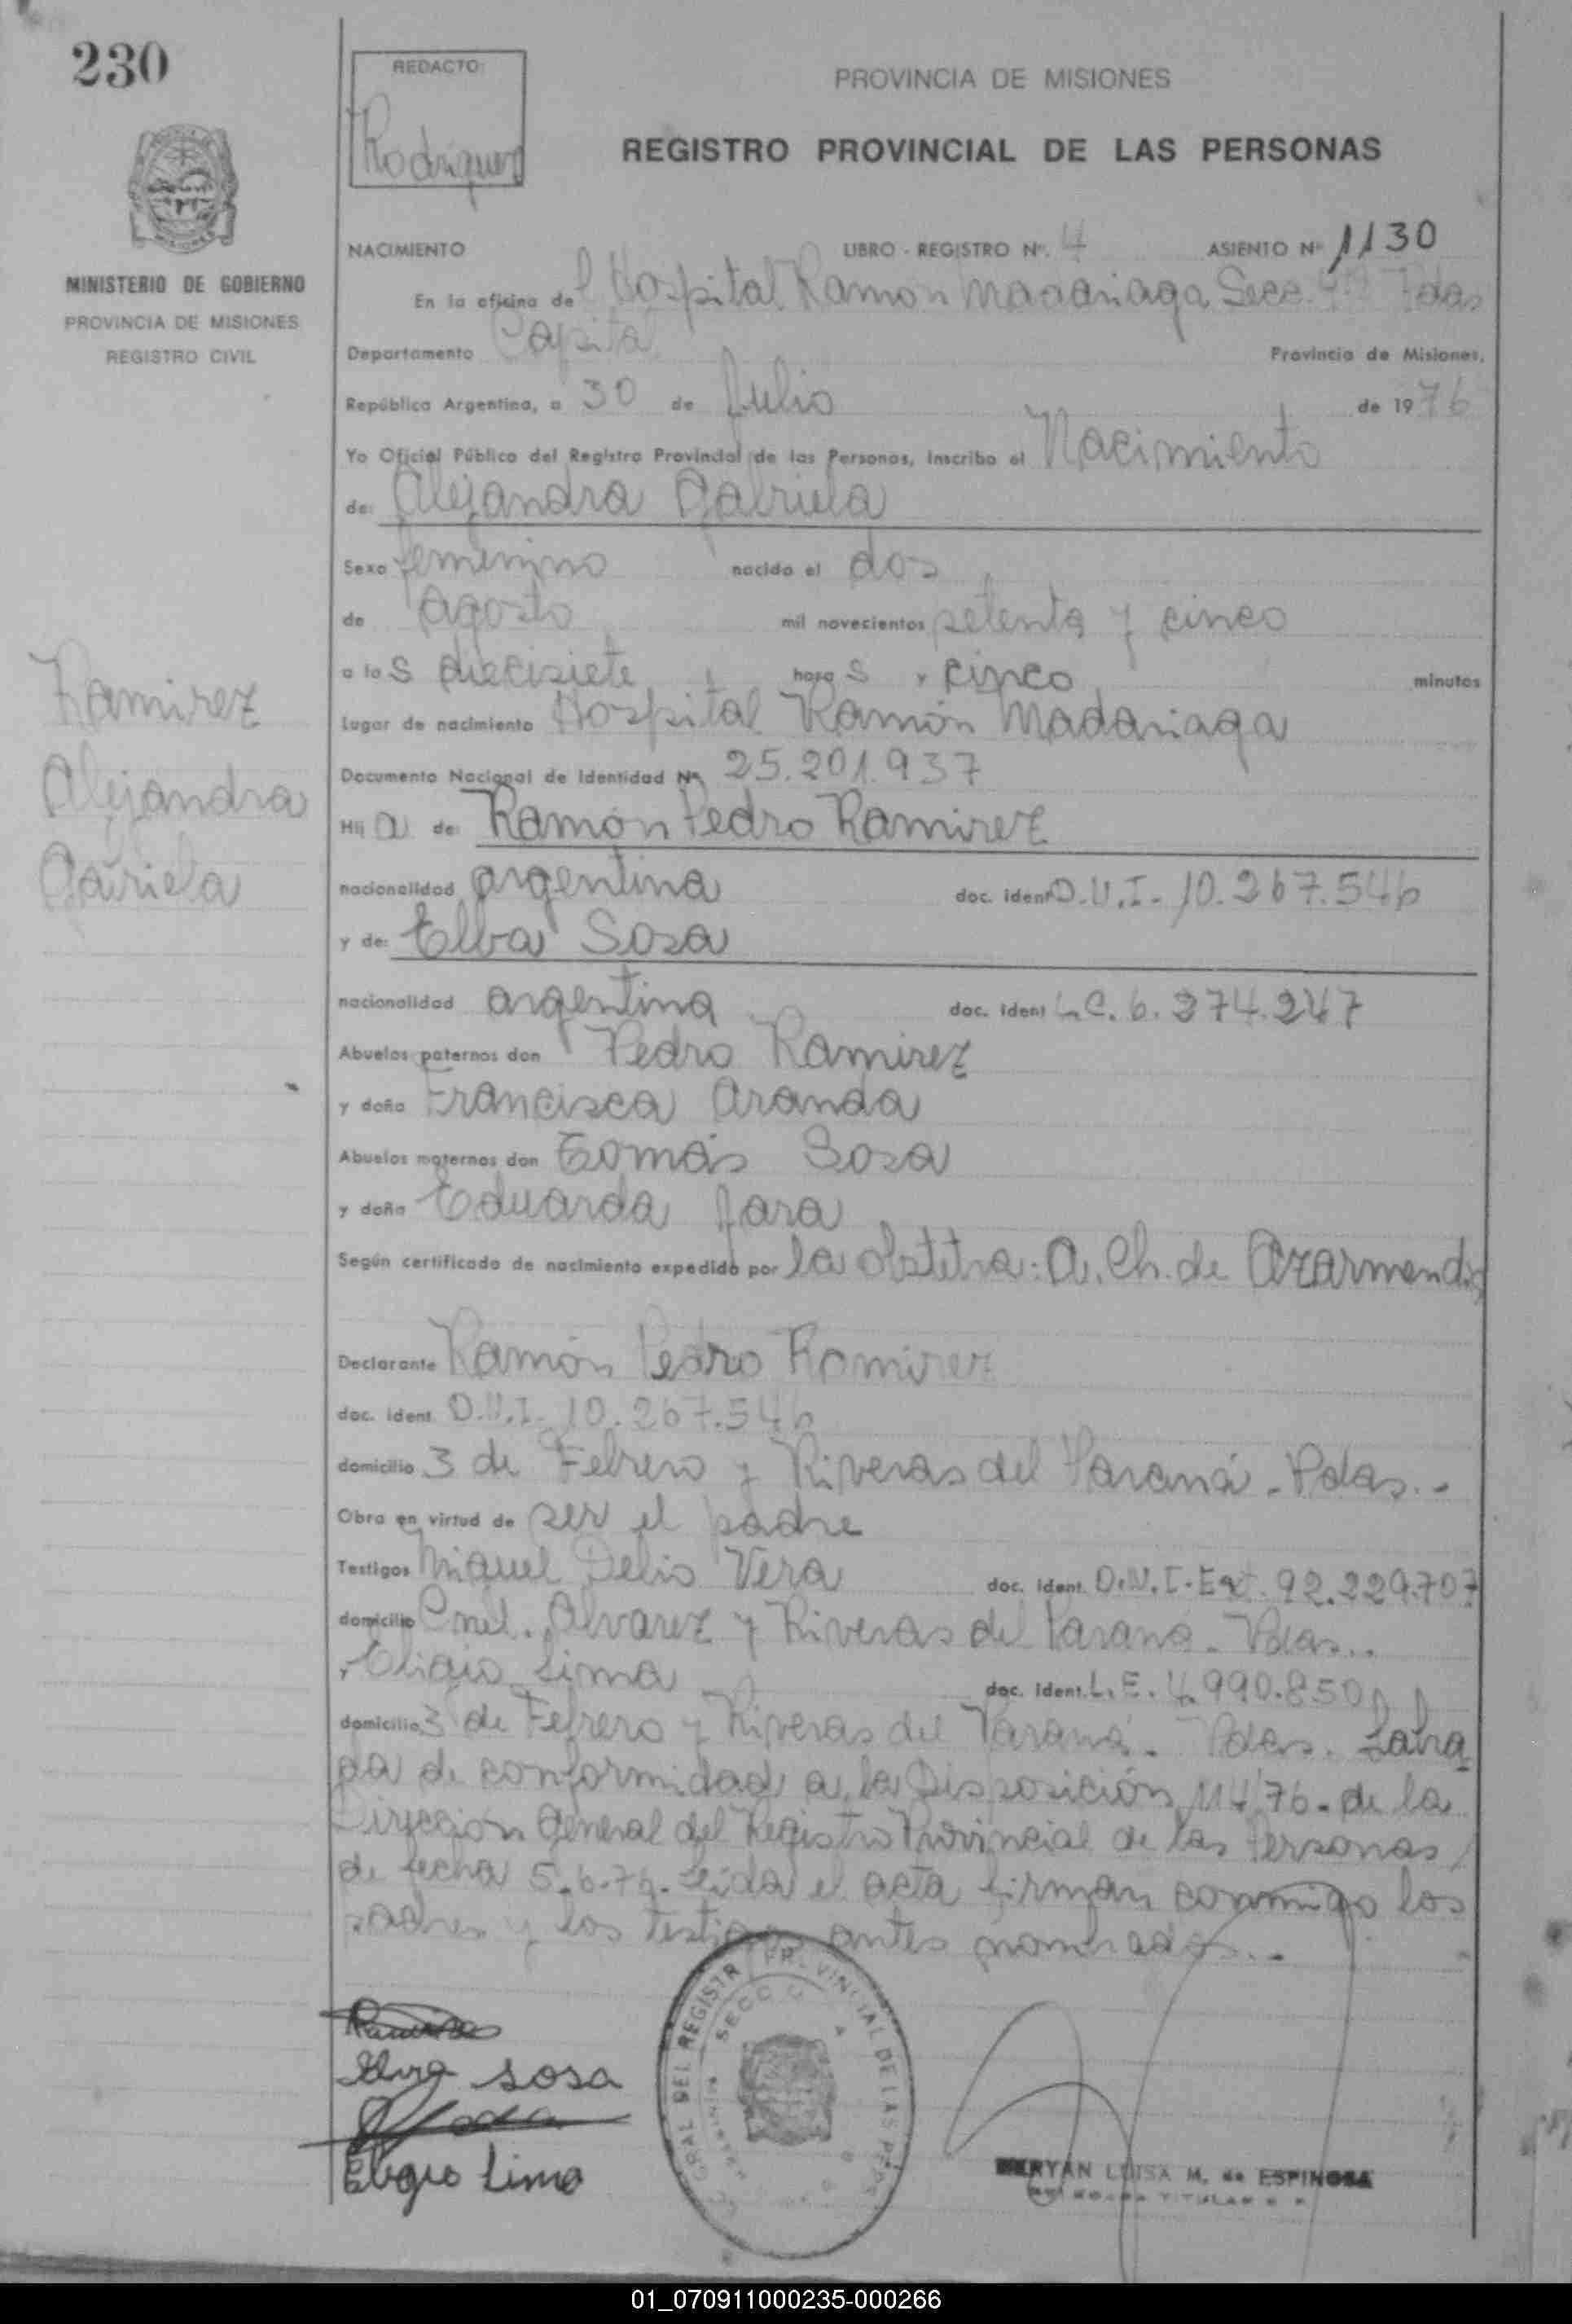 230
REDACTO:
Rodriguez
PROVINCIA DE MISIONES
REGISTRO PROVINCIAL DE LAS PERSONAS
MINISTERIO DE GOBIERNO
PROVINCIA DE MISIONES
REGISTRO CIVIL
NACIMIENTO LIBRO - REGISTRO Nº. 4 ASIENTO Nº 1130
En la oficina del Hospital Ramón Madariaga Secc. 4ta Pdas
Departamento Capital Provincia de Misiones,
República Argentina, a 30 de Julio de 1976
Yo Oficial Público del Registro Provincial de las Personas, inscribo el Nacimiento
de: Alejandra Gabriela
Sexo femenino nacido el dos
de Agosto mil novecientos setenta y cinco
a las diecisiete horas y cinco minutos
Lugar de nacimiento Hospital Ramón Madariaga
Documento Nacional de Identidad Nº 25.201.937
Hija de: Ramón Pedro Ramirez
nacionalidad argentina doc. ident D.N.I- 10.267.546
y de: Elba Sosa
nacionalidad argentina doc. ident L.C. 6.274.247
Abuelos paternos don Pedro Ramirez
y doña Francisca Aranda
Abuelos maternos don Tomás Sosa
y doña Eduarda Jara
Según certificado de nacimiento expedido por la obstetra: A. Ch. de Azarmendia
Declarante Ramón Pedro Ramirez
doc. ident. D.N.I- 10.267.546
domicilio 3 de Febrero y Riveras del Paraná - Pdas..-
Obra en virtud de ser el padre
Testigos Miguel Delio Vera doc. ident. D.N.I-Ext. 92.229.707
domicilio Cnel. Alvarez y Riveras del Paraná - Pdas..
y Eligio Lima doc. ident. L.E. 4.990.850
domicilio 3 de Febrero y Riveras del Paraná - Pdas. Labra
da de conformidad a la Disposición 114/76- de la
Dirección General del Registro Provincial de las Personas
de fecha 5-6-76- Leída el acta firman conmigo los
padres y los testigos antes nombrados..-
Ramirez
Alejandra
Gabriela
Ramirez
Elva sosa
Eligio Lima
GRAL DEL REGISTRO PROVINCIAL DE LAS PERS
MERYAN LUISA M. de ESPINOSA
01_070911000235-000266